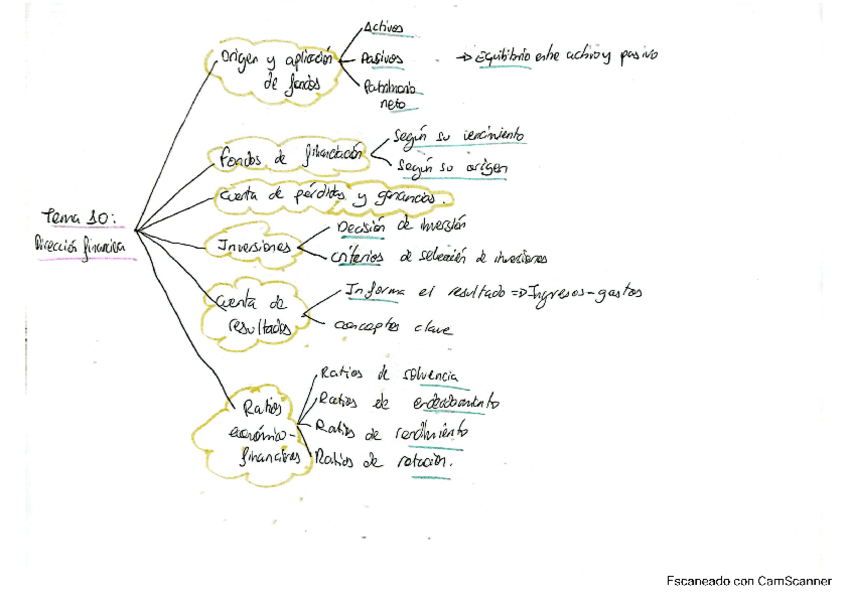 Tema 10:
Dirección financiera
Origen y aplicación
de fondos
Activos
Pasivos
Patrimonio
neto
→ Equilibrio entre activo y pasivo
Fondos de financiación
Según su vencimiento
Según su origen
Cuenta de pérdidas y ganancias.
Inversiones
Decisión de inversión
Criterios de selección de inversiones
Cuenta de
resultados
Informa el resultado => Ingresos - gastos
conceptos clave
Ratios
económico-
financieros
Ratios de solvencia
Ratios de endeudamiento
Ratios de rendimiento
Ratios de rotación.
Escaneado con CamScanner